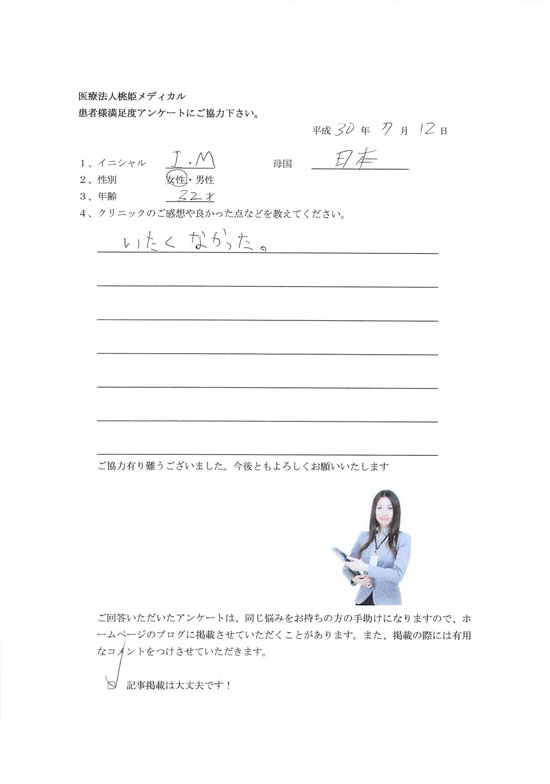 医療法人桃姫メディカル
患者様満足度アンケートにご協力下さい。
平成 30 年 7 月 12 日
1、イニシャル I.M 母国 日本
2、性別 女性・男性
3、年齢 32才
4、クリニックのご感想や良かった点などを教えてください。
いたくなかった。
ご協力有り難うございました。今後ともよろしくお願いいたします
ご回答いただいたアンケートは、同じ悩みをお持ちの方の手助けになりますので、ホ
ームページのブログに掲載させていただくことがあります。また、掲載の際には有用
なコメントをつけさせていただきます。
☑ 記事掲載は大丈夫です！